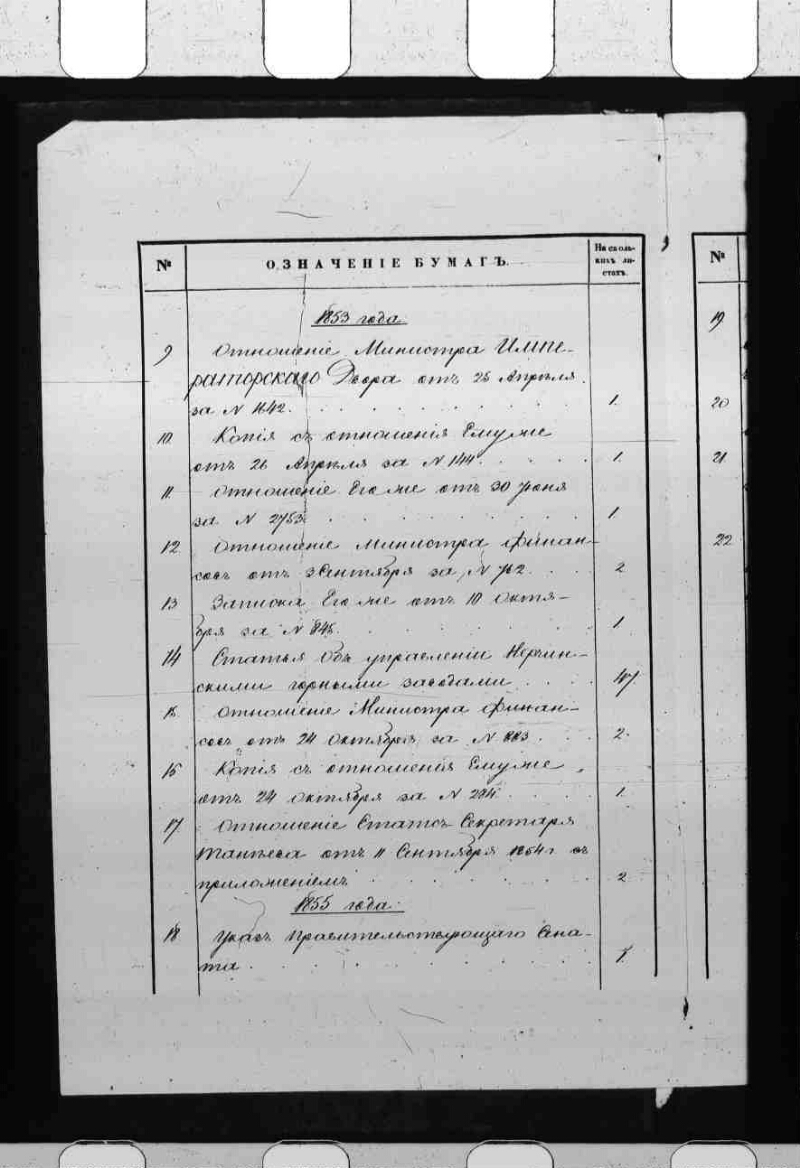 № ОЗНАЧЕНІЕ БУМАГЪ. На сколь-
кихъ ли-
стахъ.
№
1853 года
9 Отношеніе Министра Импе-
раторскаго Двора отъ 25 Апрѣля
за N 1642. 1.
10. Копія съ отношенія Емуже
отъ 26 Апрѣля за N 144. 1.
11. Отношеніе Его же отъ 30 Іюня
за N 2753. 1.
12 Отношеніе Министра Финан-
совъ отъ Сентября за N 762. 2
13 Записка Его же отъ 10 Октя-
бря за N 845. 1
14 Статья объ управленіи Нерчин-
скими горными заводами 47
15. Отношеніе Министра Финан-
совъ отъ 24 Октября за N 883. 2.
16 Копія съ отношенія Емуже
отъ 24 Октября за N 284. 1.
17. Отношеніе Статсъ Секретаря
Танѣева отъ 11 Сентября 1854 г. съ
приложеніемъ 2
1855 года.
18 Указъ Правительствующаго Сена-
та 1.
19
20
21
22